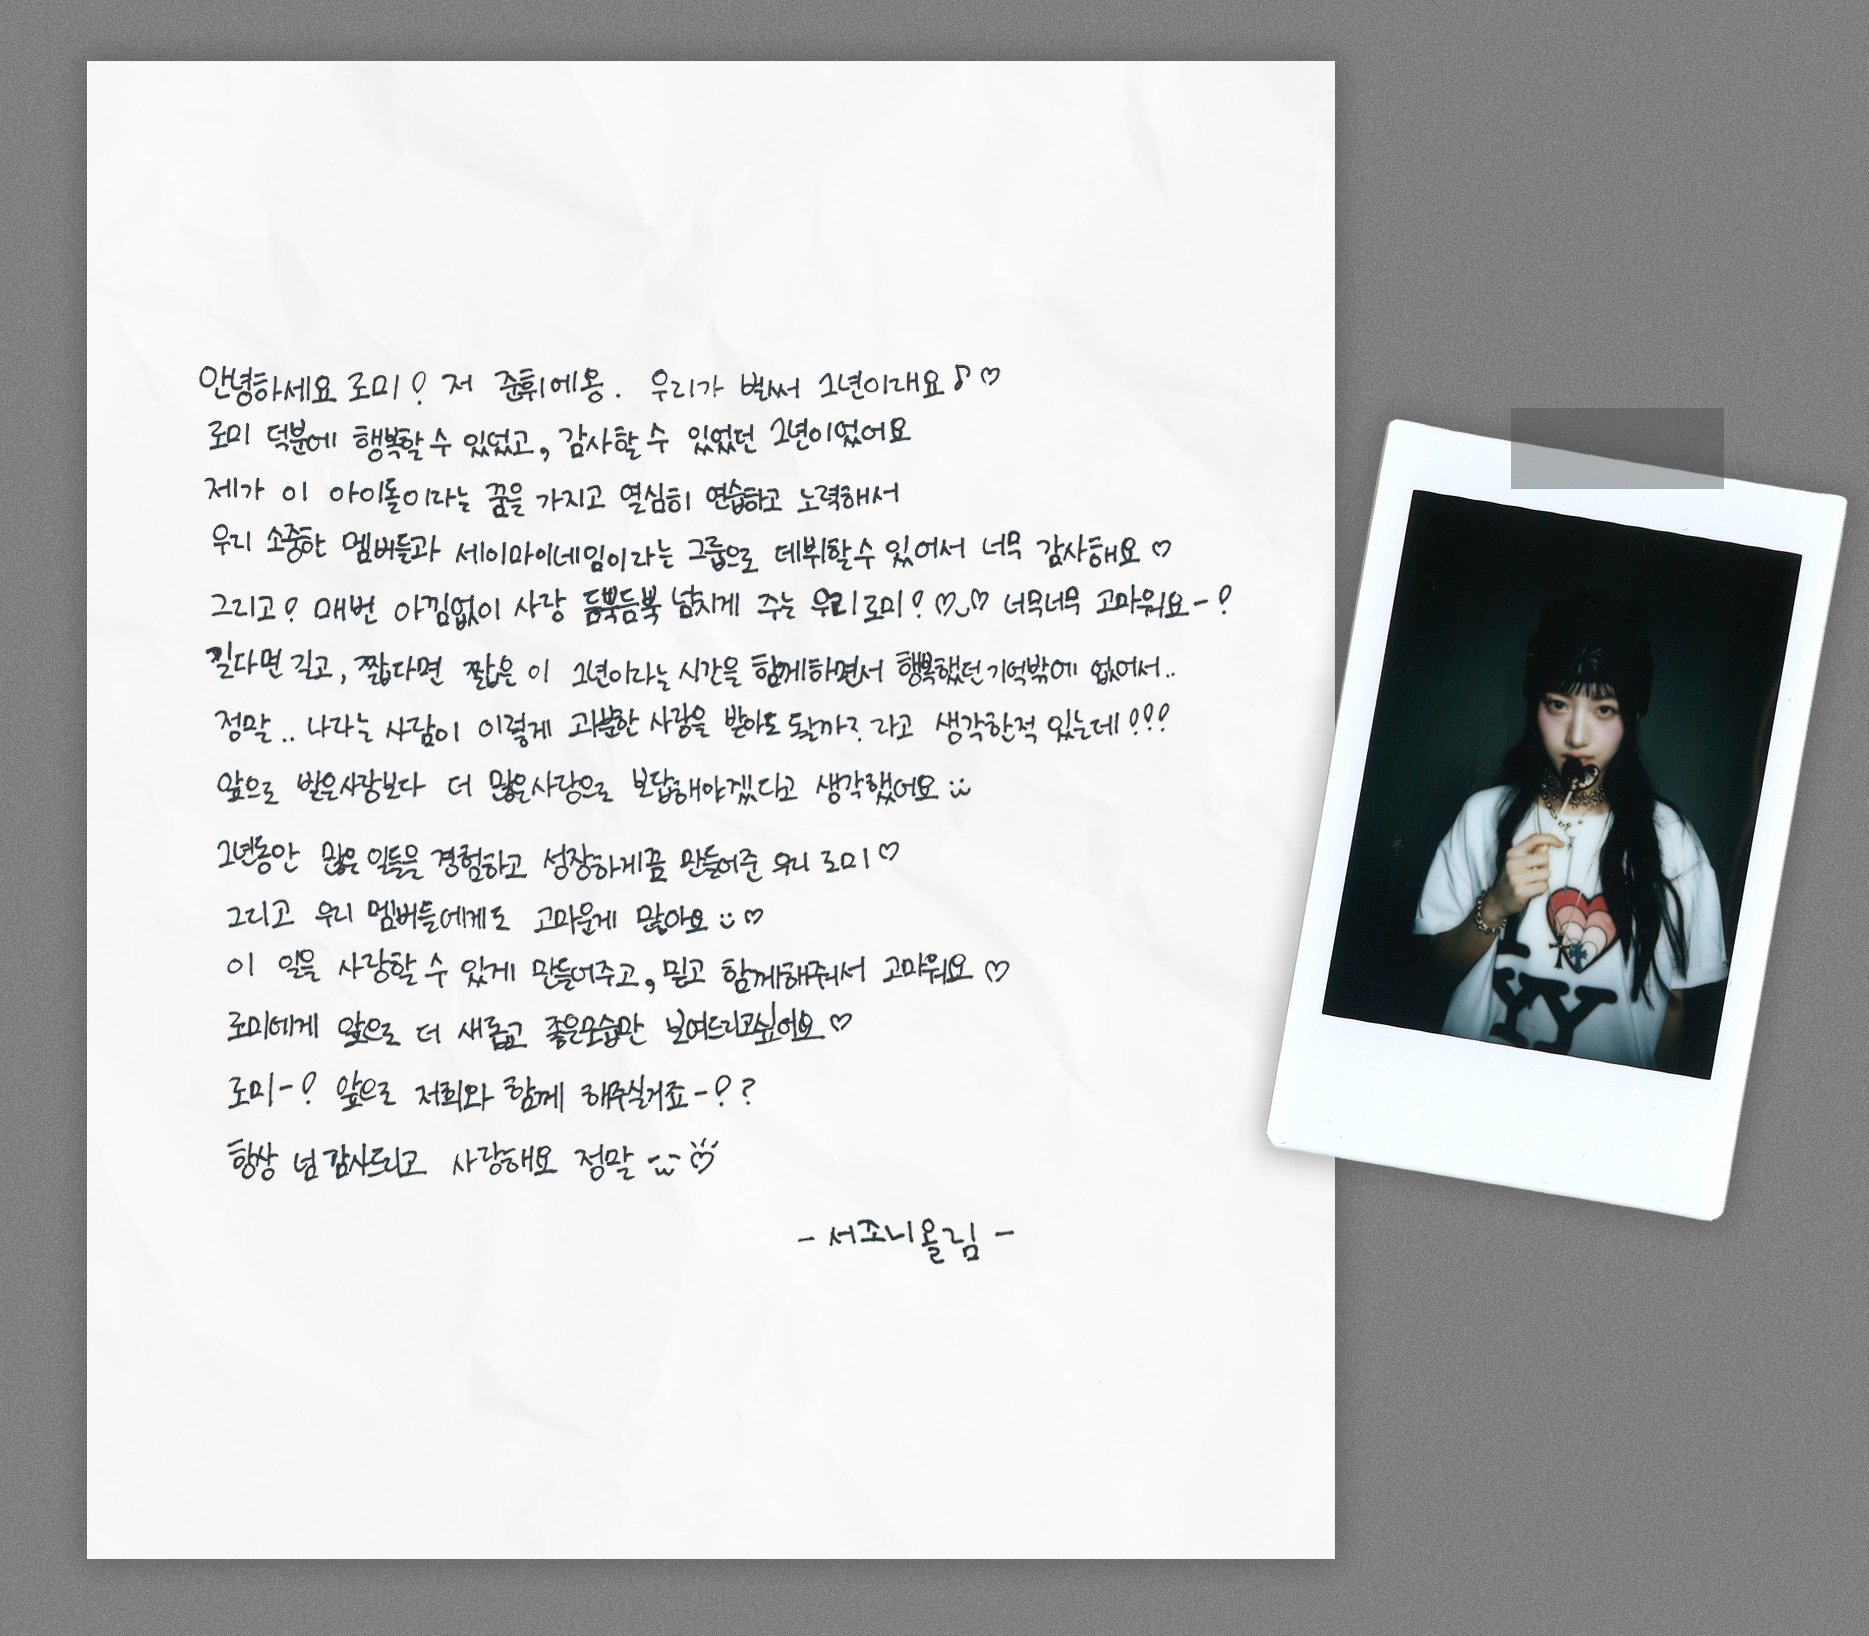 안녕하세요 로미! 저 준휘에옹. 우리가 벌써 1년이래요♪♡
로미 덕분에 행복할 수 있었고, 감사할 수 있었던 1년이었어요
제가 이 아이돌이라는 꿈을 가지고 열심히 연습하고 노력해서
우리 소중한 멤버들과 세이마이네임이라는 그룹으로 데뷔할 수 있어서 너무 감사해요♡
그리고! 매번 아낌없이 사랑 듬뿍듬뿍 넘치게 주는 우리 로미! ♡◡♡ 너무너무 고마워요-!
길다면 길고, 짧다면 짧은 이 1년이라는 시간을 함께하면서 행복했던 기억밖에 없어서..
정말.. 나라는 사람이 이렇게 과분한 사랑을 받아도 될까? 라고 생각한적 있는데!!!
앞으로 받은사랑보다 더 많은사랑으로 보답해야겠다고 생각했어요
1년동안 많은 일들을 경험하고 성장하게끔 만들어준 우리 로미♡
그리고 우리 멤버들에게도 고마운게 많아요 ♡
이 일을 사랑할 수 있게 만들어주고, 믿고 함께해줘서 고마워요♡
로미에게 앞으로 더 새롭고 좋은모습만 보여드리고싶어요♡
로미-! 앞으로 저희와 함께 해주실거죠-!?
항상 넘 감사드리고 사랑해요 정말 ♡
- 서조니올림 -
I
NY